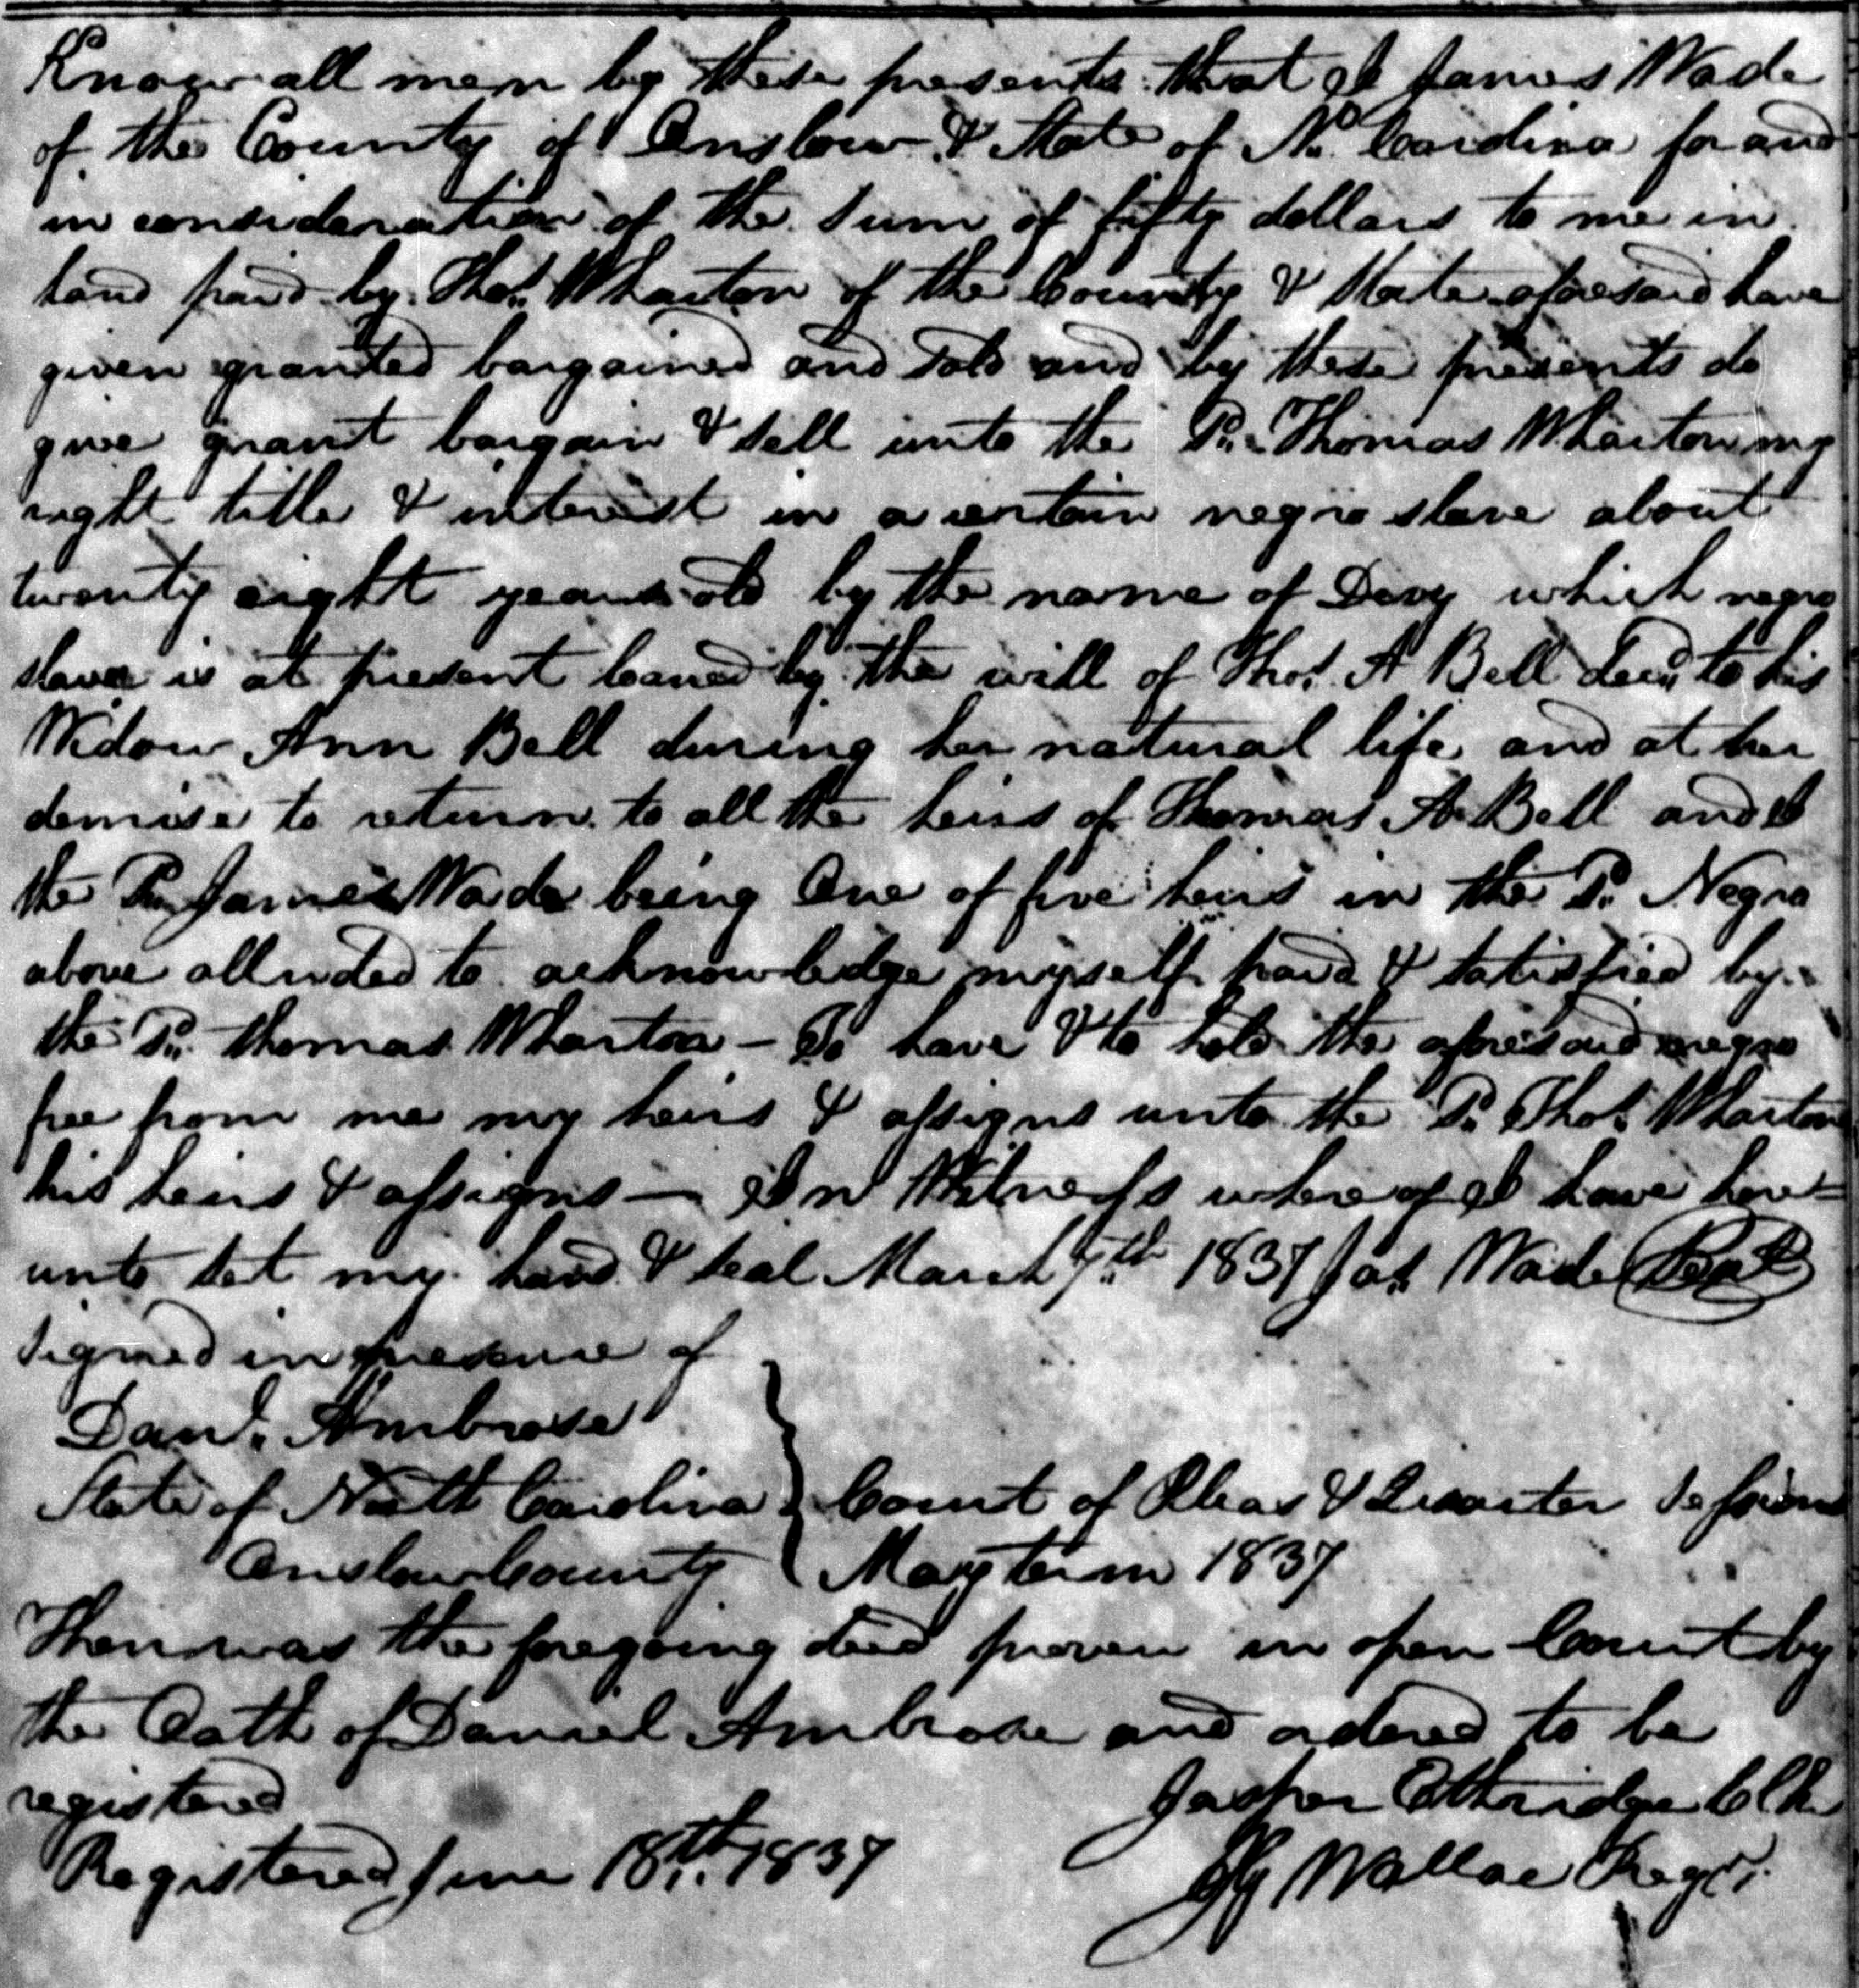 Know all men by these presents that I James Wade
of the County of Onslow & State of No. Carolina for and
in consideration of the sum of fifty dollars to me in
hand paid by Thos. Wharton of the County & State aforesaid have
given granted bargained and sold and by these presents do
give grant bargain & sell unto the sd. Thomas Wharton my
right title & interest in a certain negro slave about
twenty eight years old by the name of Davy which negro
slave is at present loaned by the will of Thos. A Bell decd. to his
Widow Ann Bell during her natural life and at her
demise to return to all the heirs of Thomas A. Bell and I
the sd. James Wade being One of five heirs in the sd. Negro
above alluded to acknowledge myself paid & satisfied by
the sd. thomas Wharton – To have & to hold the aforesaid negro
free from me my heirs & assigns unto the sd. Thos. Wharton
his heirs & assigns — In Witness where of I have here=
unto set my hand & seal March 7th 1837 Jas. Wade Seal
Signed in presence of
Danl. Ambrose
State of North Carolina } Court of Pleas & Quarter Sessions
Onslow County } May term 1837
Then was the foregoing deed proven in open Court by
the Oath of Daniel Ambrose and ordered to be
registered
Jasper Etheridge Clk
Registered June 18th. 1837
Wallace Regr.